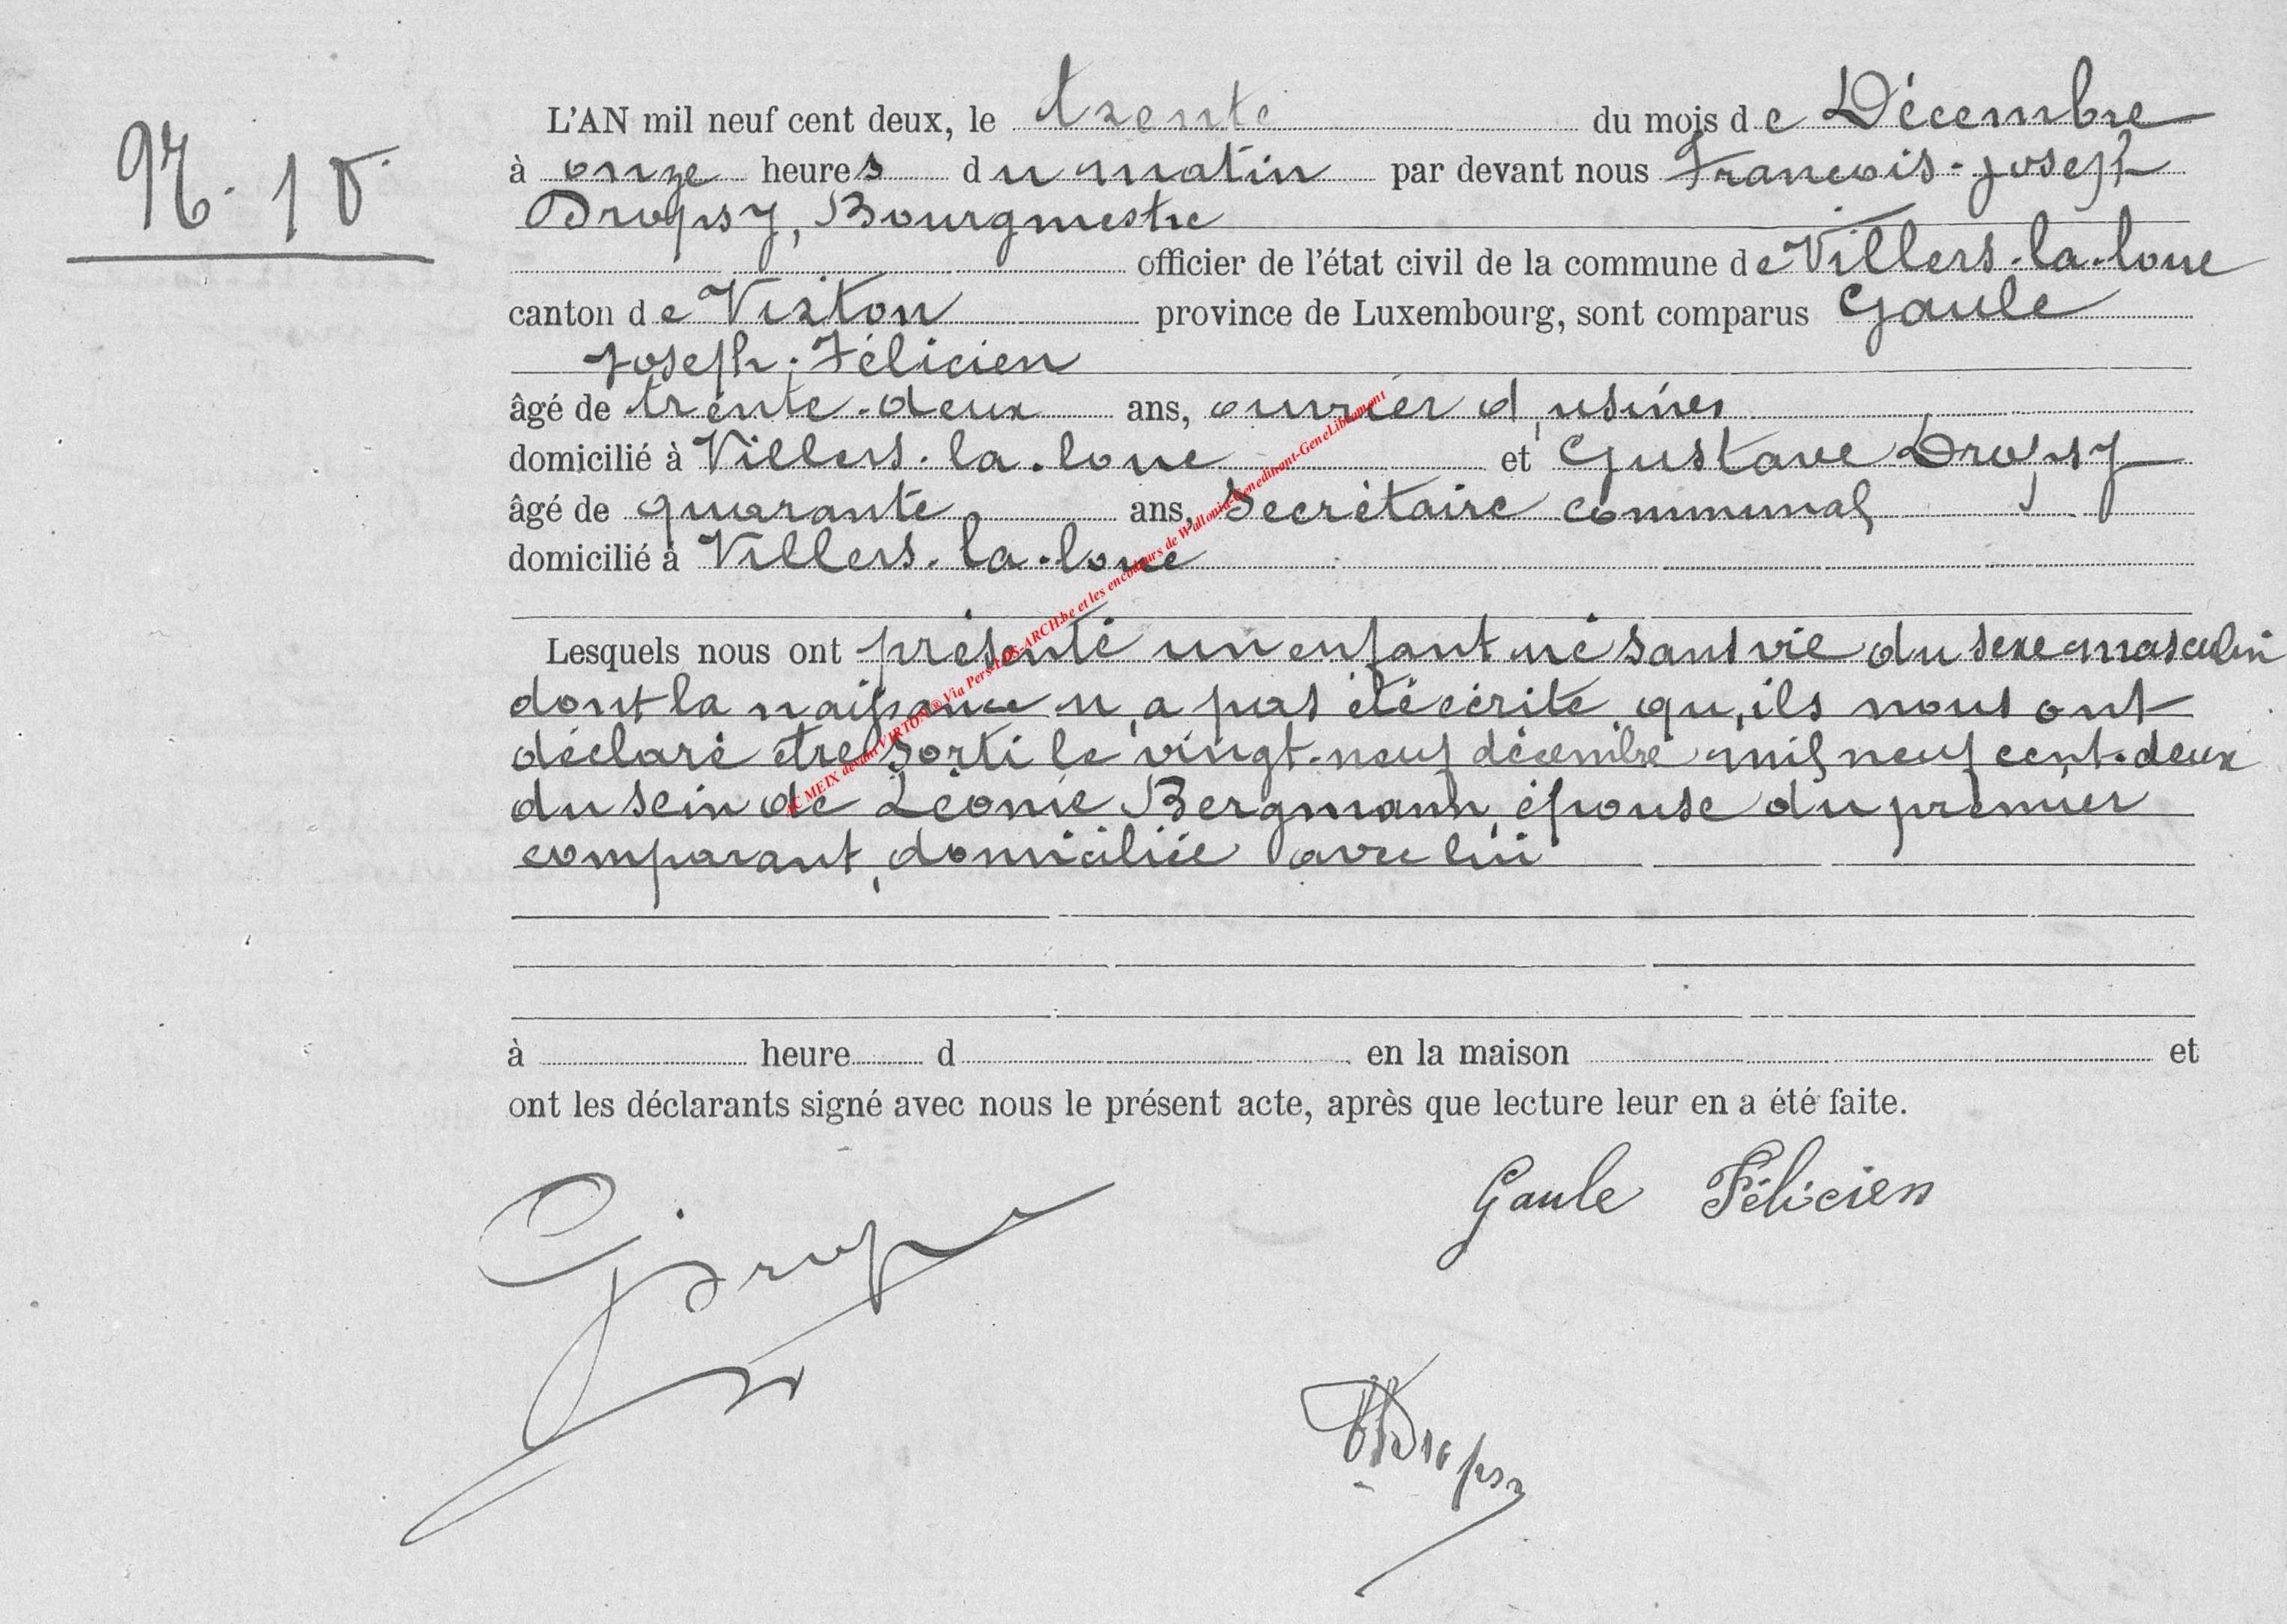 N. 18.
L'AN mil neuf cent deux, le trente du mois de Décembre
à onze heures du matin par devant nous Francois-Joseph
Dropsy, Bourgmestre
officier de l'état civil de la commune de Villers-la-loue
canton de Virton province de Luxembourg, sont comparus Gaule
Joseph-Félicien
âgé de trente-deux ans, ouvrier d'usines
domicilié à Villers-la-loue et Gustave Dropsy
âgé de quarante ans, Secrétaire communal
domicilié à Villers-la-loue
Lesquels nous ont présenté un enfant né sans vie du sexe masculin
dont la naissance n'a pas été écrite qu'ils nous ont
déclaré être sorti le vingt-neuf décembre mil neuf cent-deux
du sein de Léonie Bergmann, épouse du premier
comparant, domiciliée avec lui
à heure d en la maison et
ont les déclarants signé avec nous le présent acte, après que lecture leur en a été faite.
Gaule Félicien
Dropsy